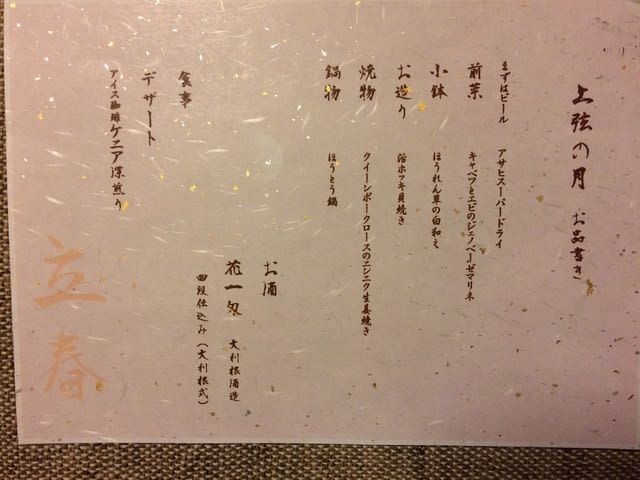 上弦の月 お品書き
まずはビール アサヒスーパードライ
前菜 キャベツとエビのジェノベーゼマリネ
小鉢 ほうれん草の白和え
お造り 活ホッキ貝焼き
焼物 クイーンポークロースのニンニク生姜焼き
鍋物 ほうとう鍋
お酒
花一匁 大利根酒造
四段仕込み(大利根式)
食事
デザート
アイス珈琲ケニア深煎り
立春